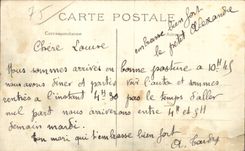 75
CARTE POSTALE
Correspondance
embrasse bien fort
le petit Alexandre
Chère Laure
Nous sommes arrivés en bonne posture à 10H45
nous avons diner et parler voir l'auto et sommes
rentrés a l'instant 4H30 pas le temps d'aller
nul part nous arriverons entre 4H et 5H
demain mardi.
Ton mari qui t'embrasse bien fort
A.